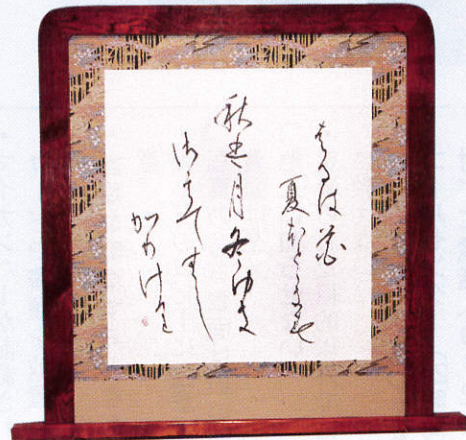 はるは花
夏ほとゝきす
秋は月冬ゆき
さえてすゝし
かりけり